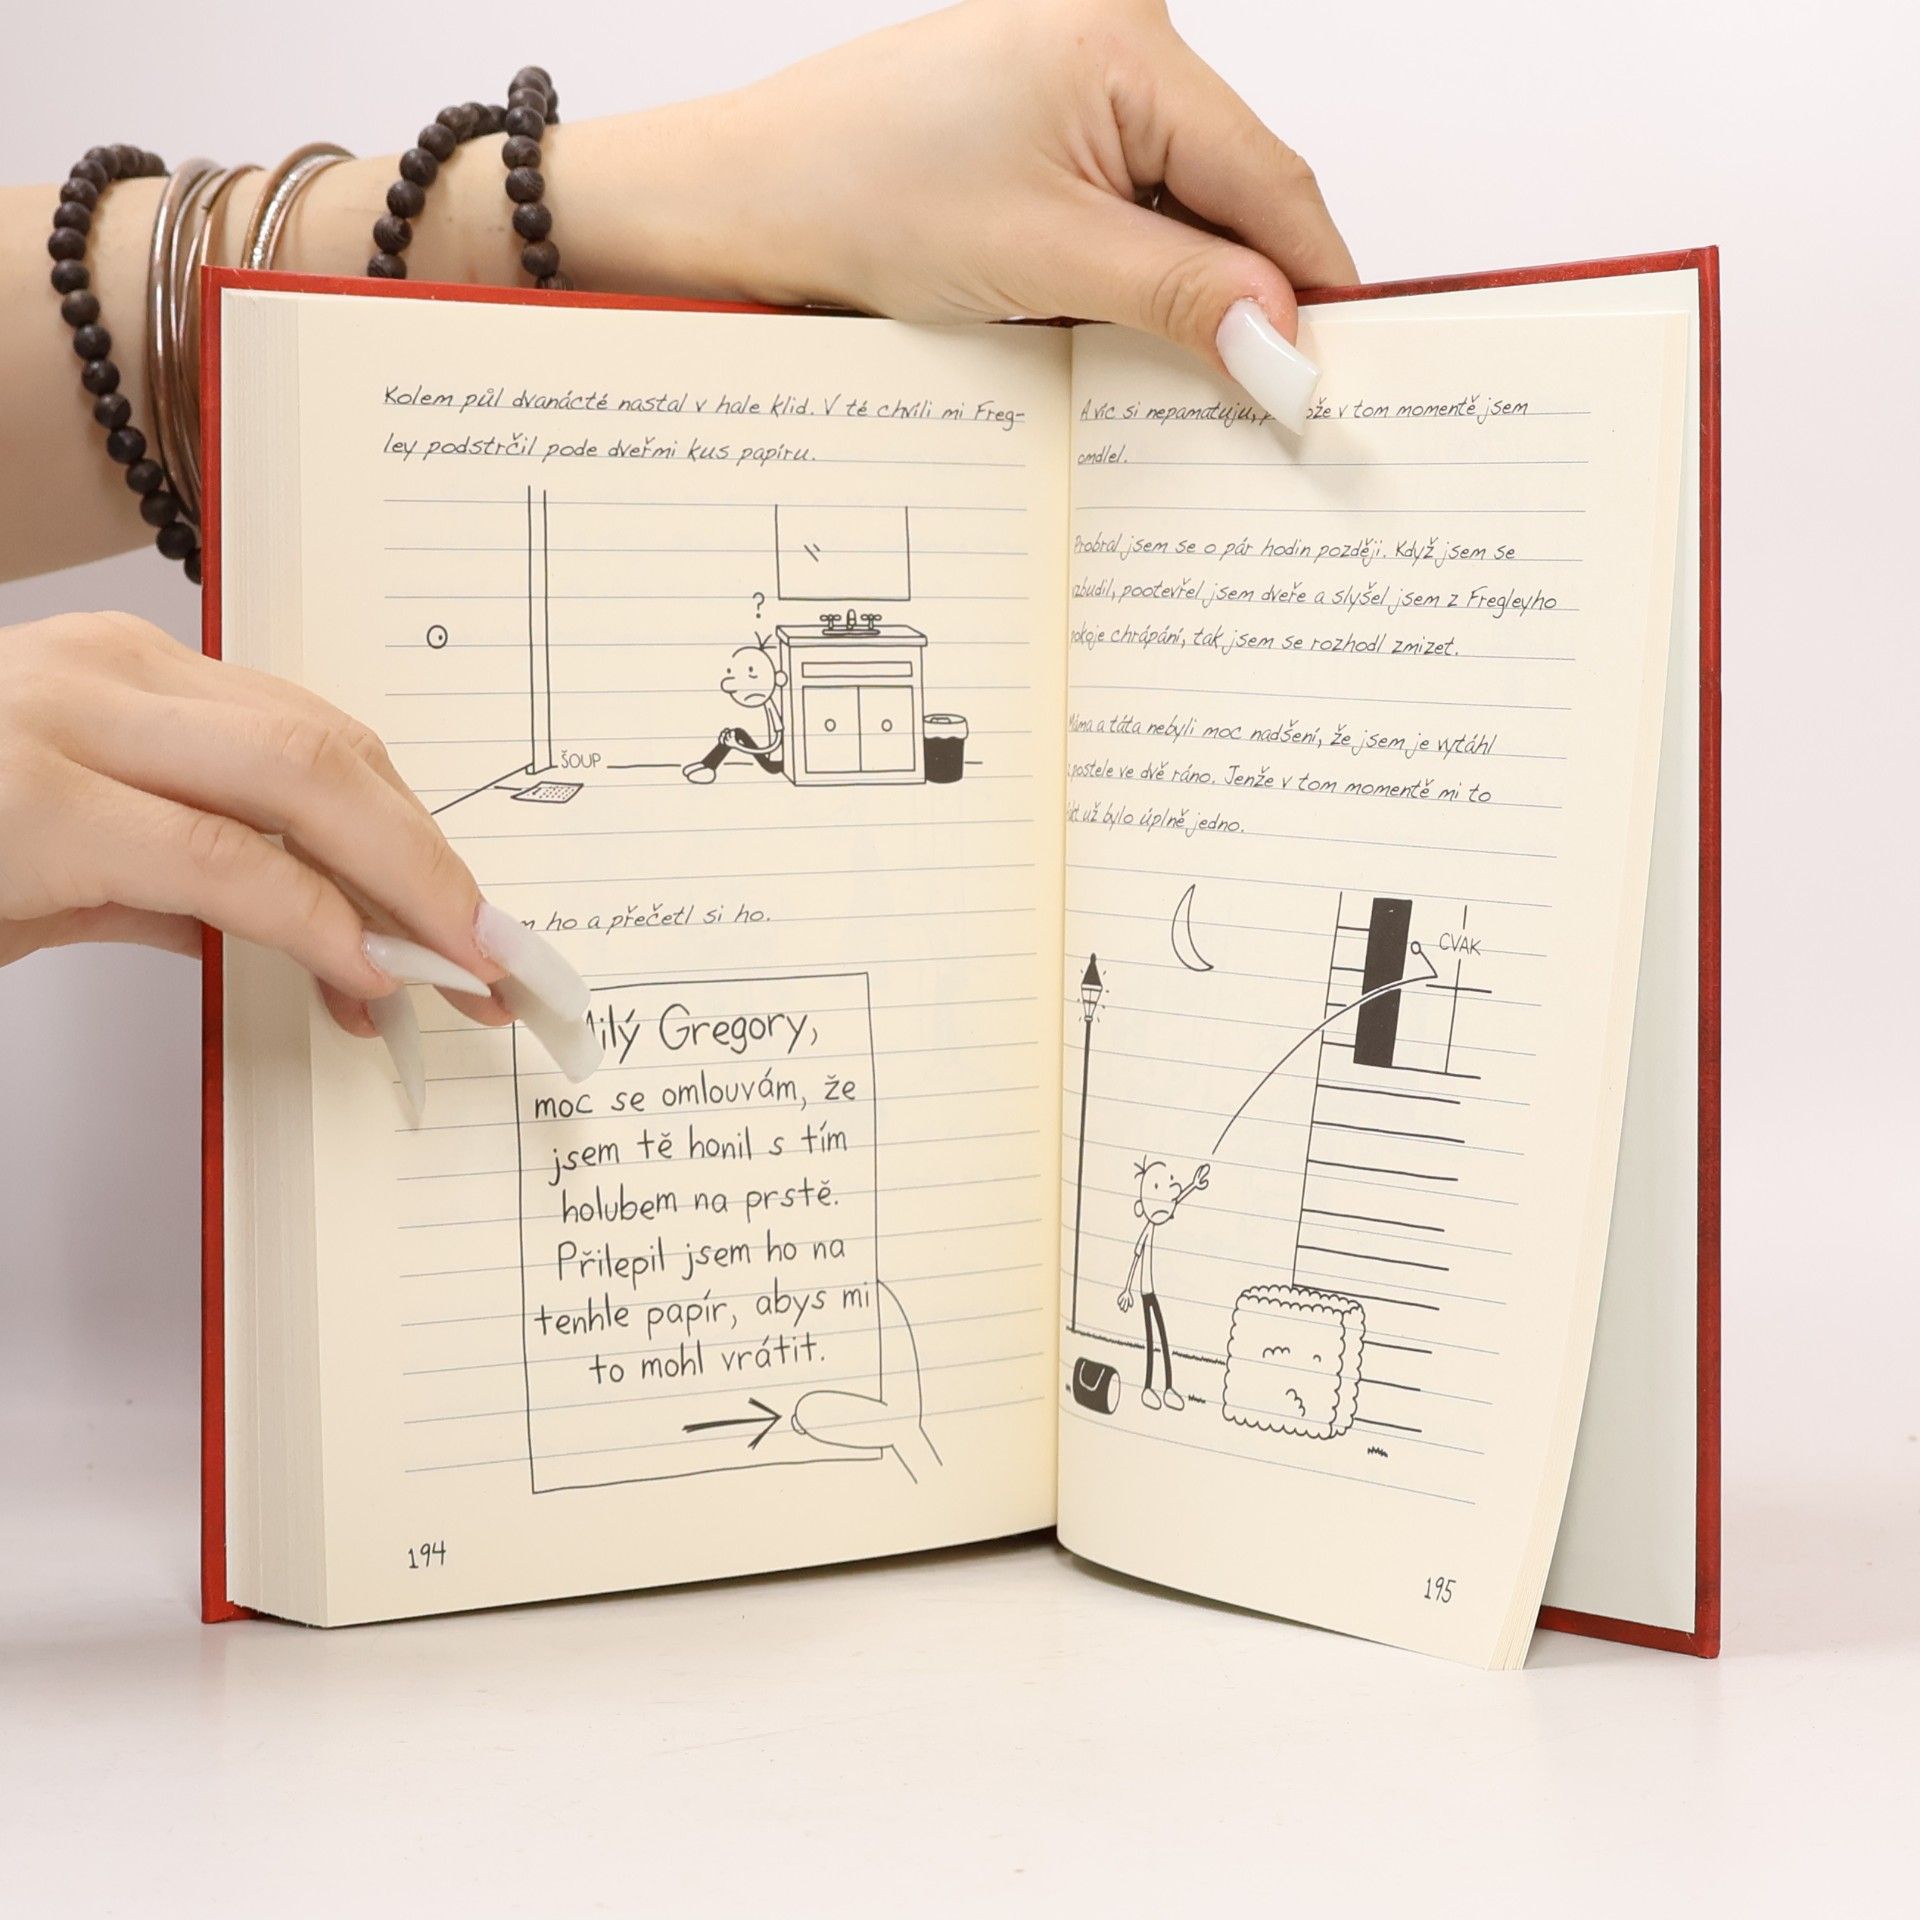 Kolem půl dvanácté nastal v hale klid. V té chvíli mi Freg-
ley podstrčil pode dveřmi kus papíru.
?
ŠOUP
ho a přečetl si ho.
Gregory,
moc se omlouvám, že
jsem tě honil s tím
holubem na prstě.
Přilepil jsem ho na
tenhle papír, abys mi
to mohl vrátit.
194
A víc si nepamatuju, v tom momentě jsem
omdlel.
Probral jsem se o pár hodin později. Když jsem se
pootevřel jsem dveře a slyšel jsem z Fregleyho
chrápání, tak jsem se rozhodl zmizet.
Máma a táta nebyli moc nadšení, že jsem je vytáhl
postele ve dvě ráno. Jenže v tom momentě mi to
už bylo úplně jedno.
CVAK
195